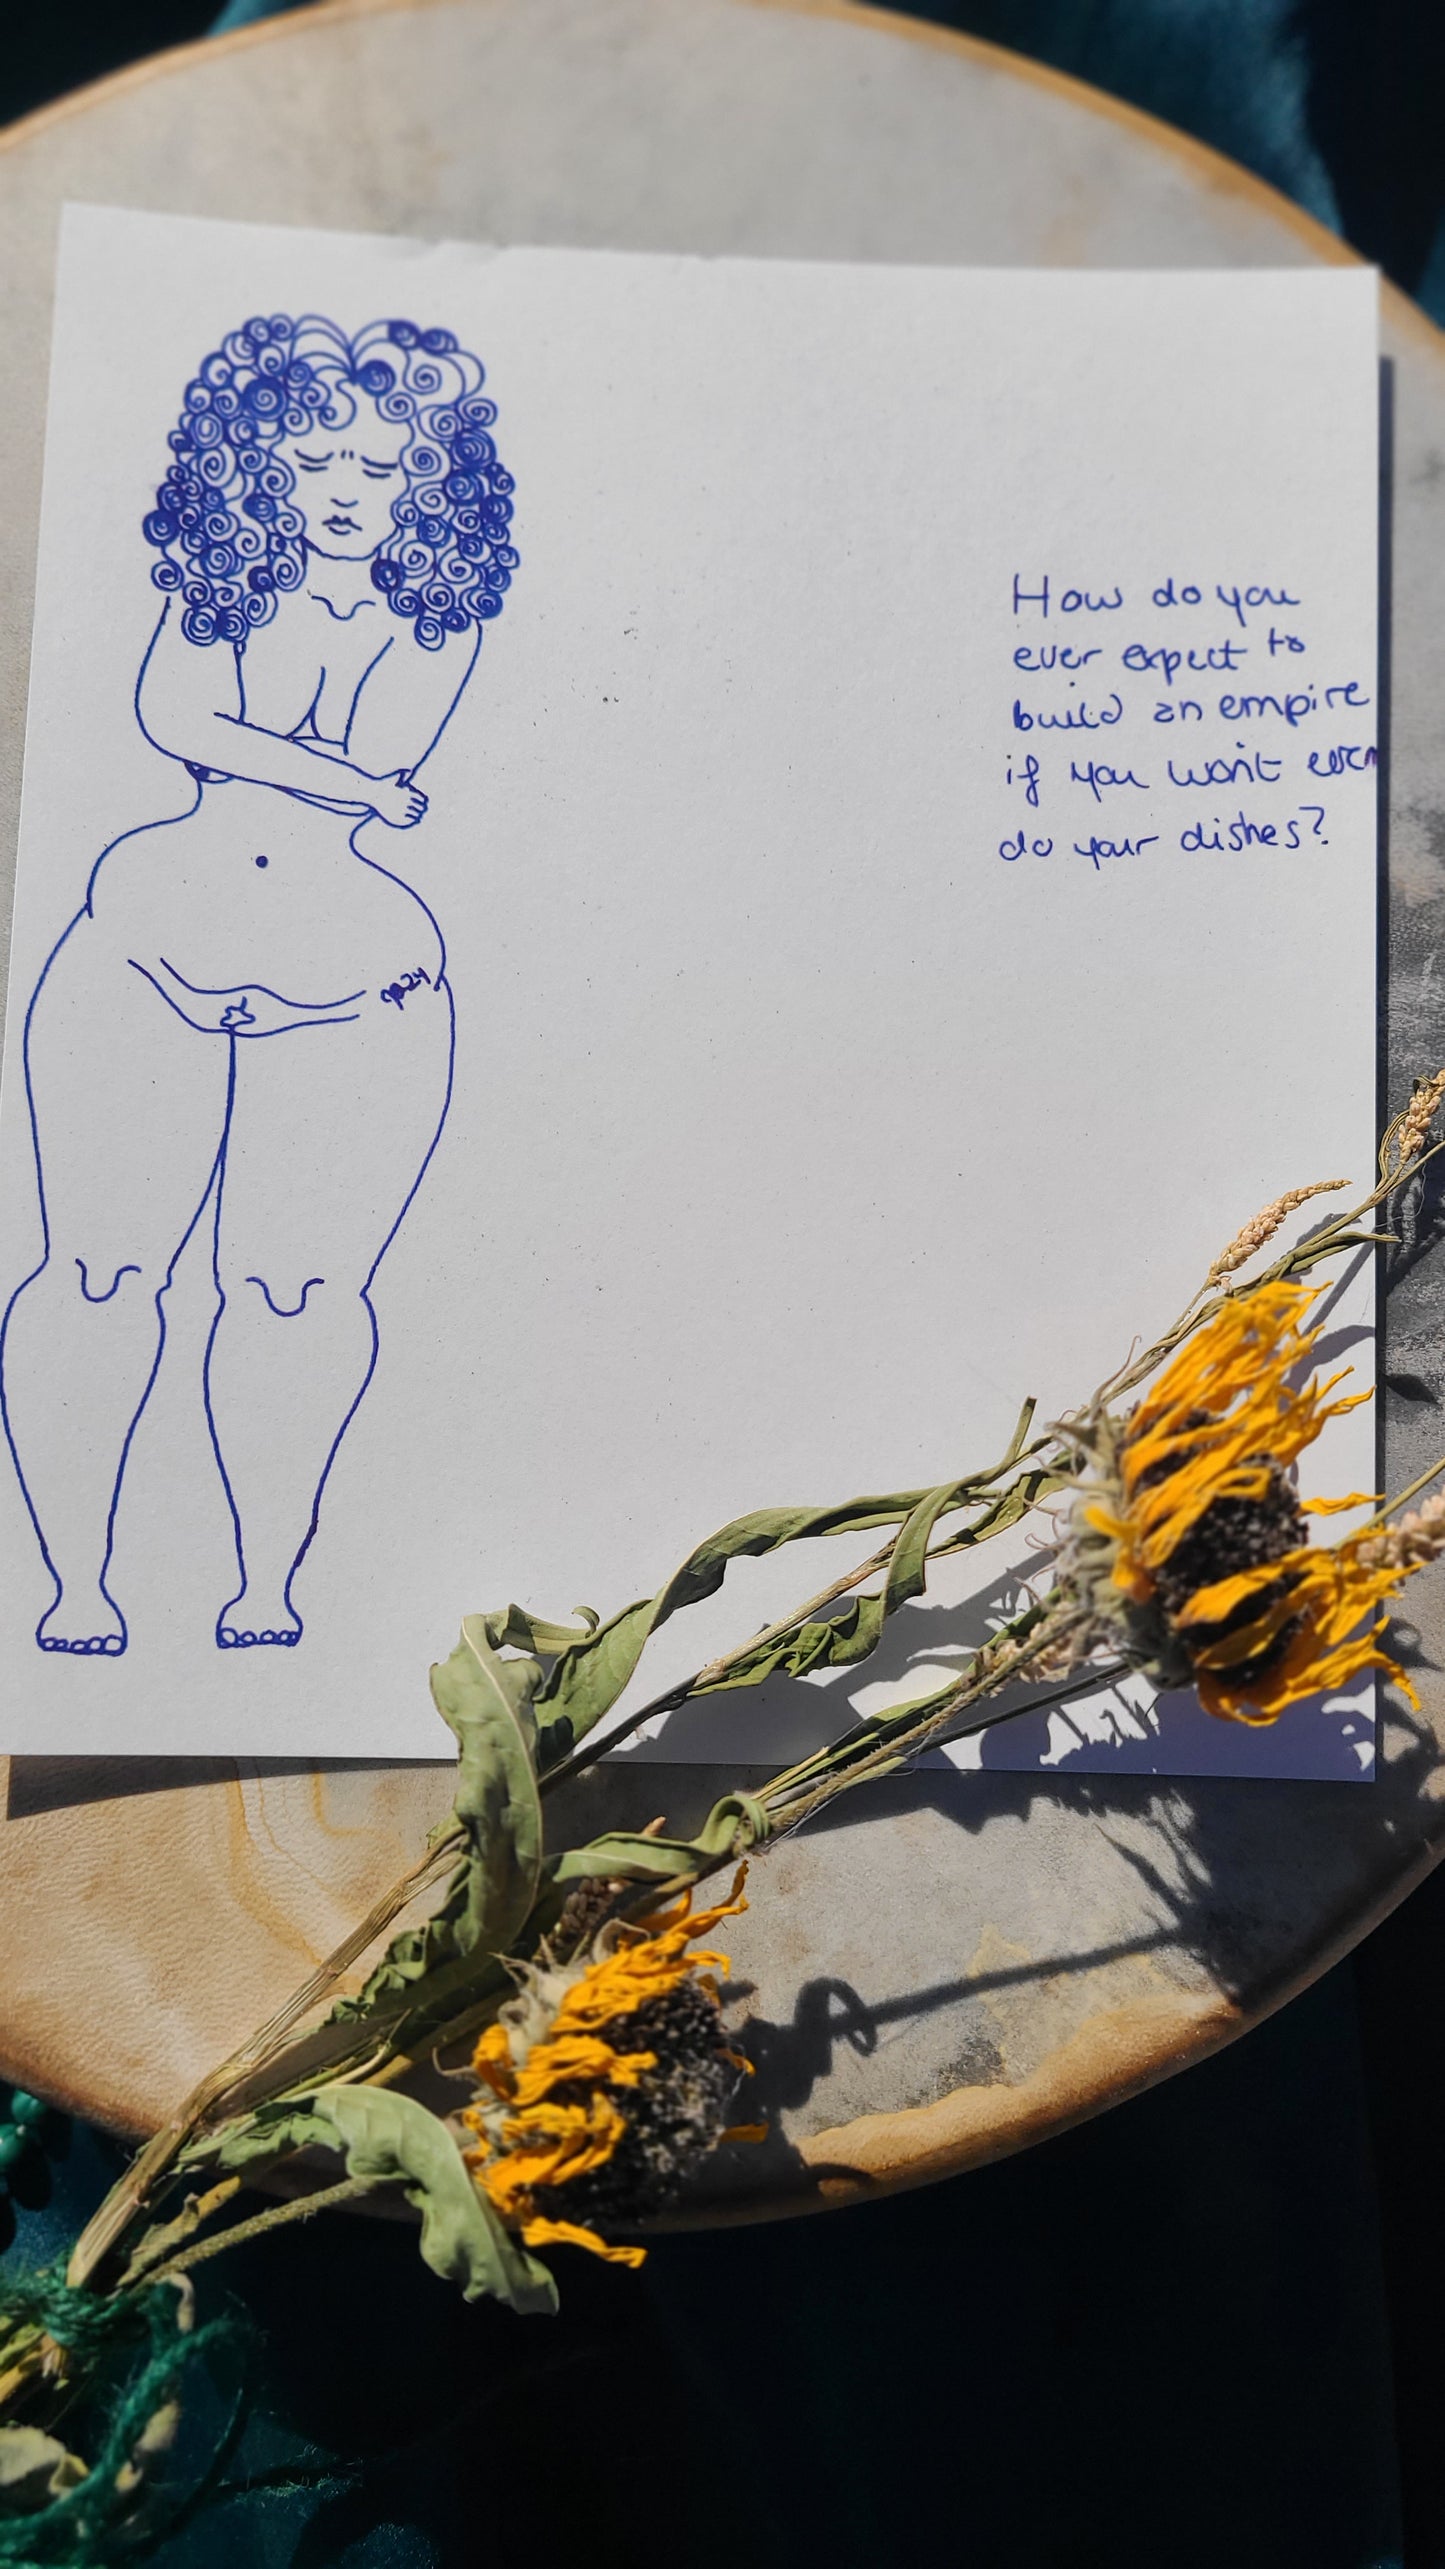 How do you
ever expect to
build an empire
if you won't even
do your dishes?